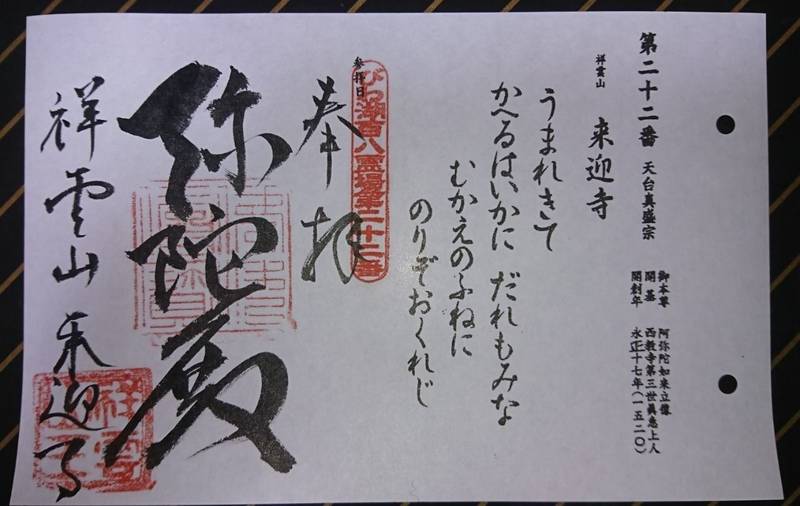 第二十二番 天台真盛宗
祥雲山 来迎寺
御本尊 阿弥陀如来立像
開基 西教寺第三世眞恵上人
開創年 永正十七年(一五二〇)
うまれきて
かへるはいかに だれもみな
むかえのふねに
のりぞおくれじ
参拝日
びわ湖百八霊場第二十二番
奉拝
弥陀殿
祥雲山 来迎寺